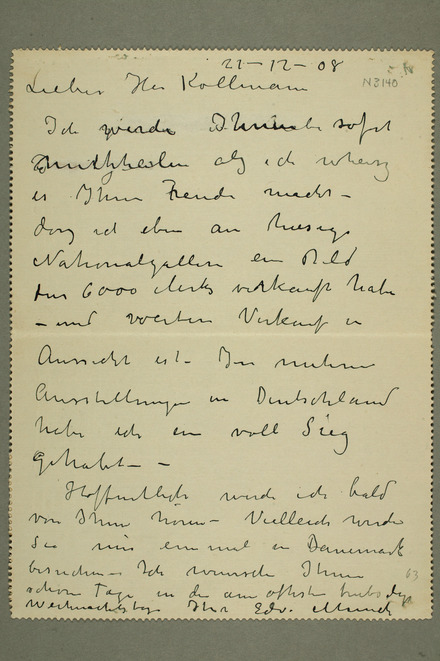 21-12-08
N 3140
Lieber Herr Kollmann
Ich werde Ihnen sofort
mittheilen als ich
es Ihnen Freude macht –
dass ich eben an hiesige
Nationalgallerie ein Bild
für 6000 Mark verkauft habe
– und weiteren Verkauf in
Aussicht ist – In meinen
Ausstellungen in Deutschland
habe ich ein voll Sieg
gehabt – –
Hoffentlich werde ich bald
von Ihnen hören – Vielleicht werden
Sie mir einmal in Danemark
besuchen – Ich wünsche Ihnen
63
schöne Tage in
Weihnachtstage Ihr Edv. Munch